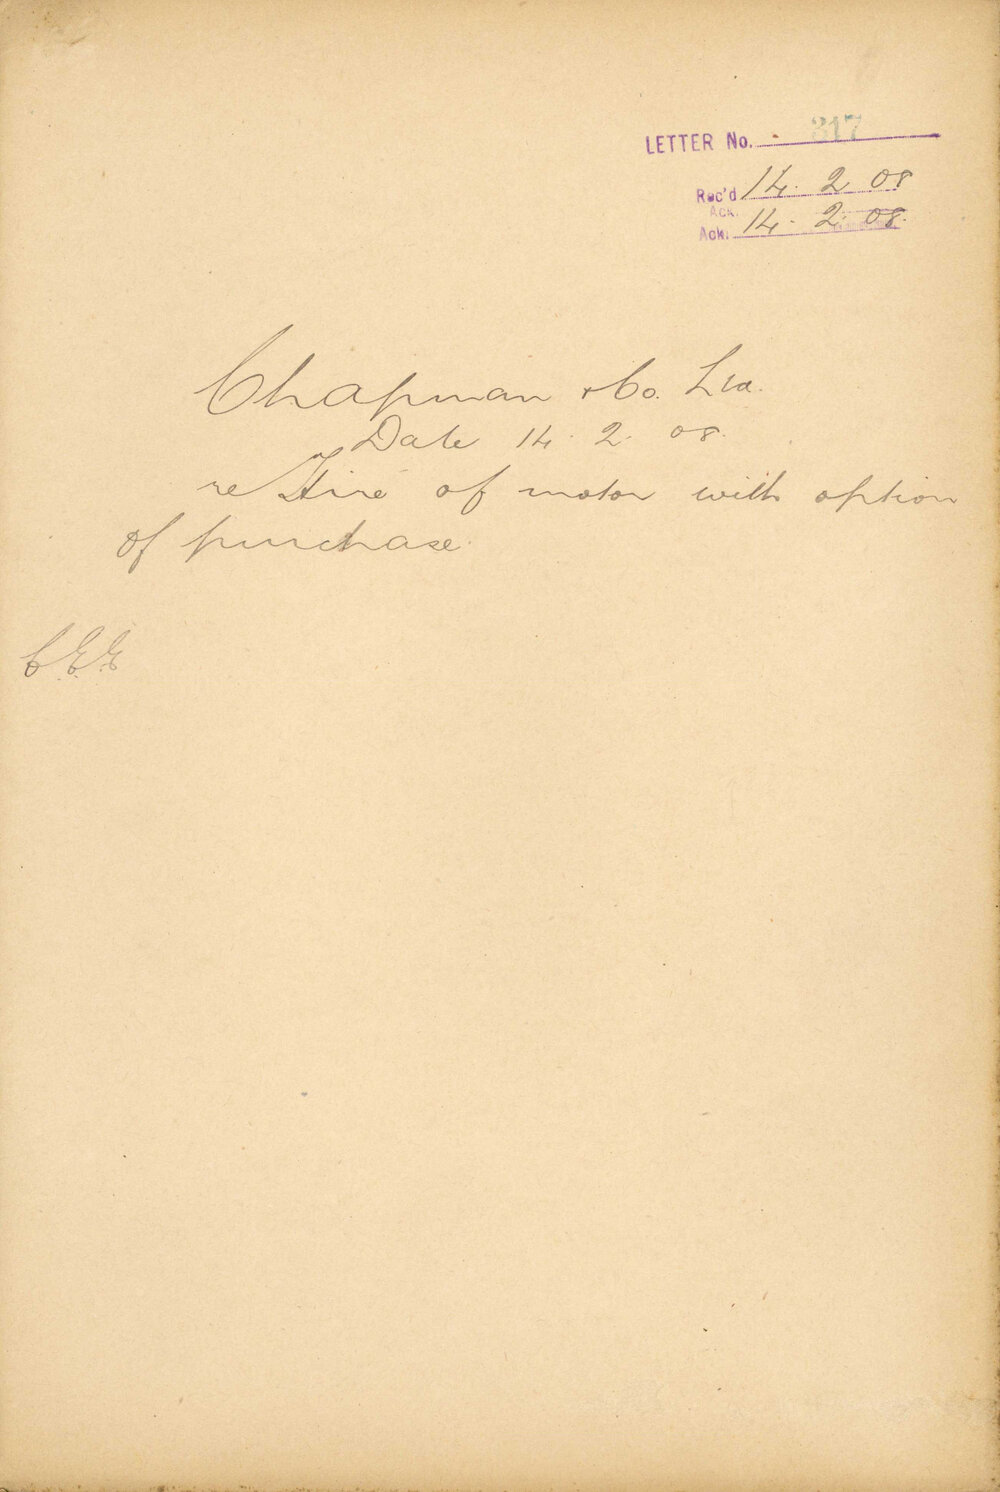 LETTER No. 317
Rec'd 14. 2 08
Ack.
Ack. 14. 2. 08.
Chapman & Co. Ltd.
Date 14. 2. 08.
re Hire of motor with option
of purchase.
C.E.E.